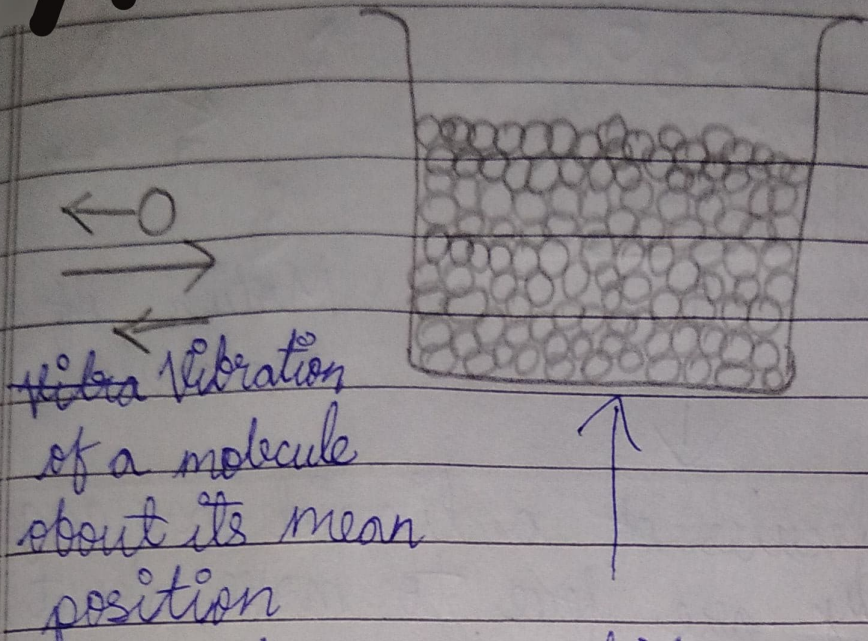 Vibra Vibration
of a molecule
about its mean
position